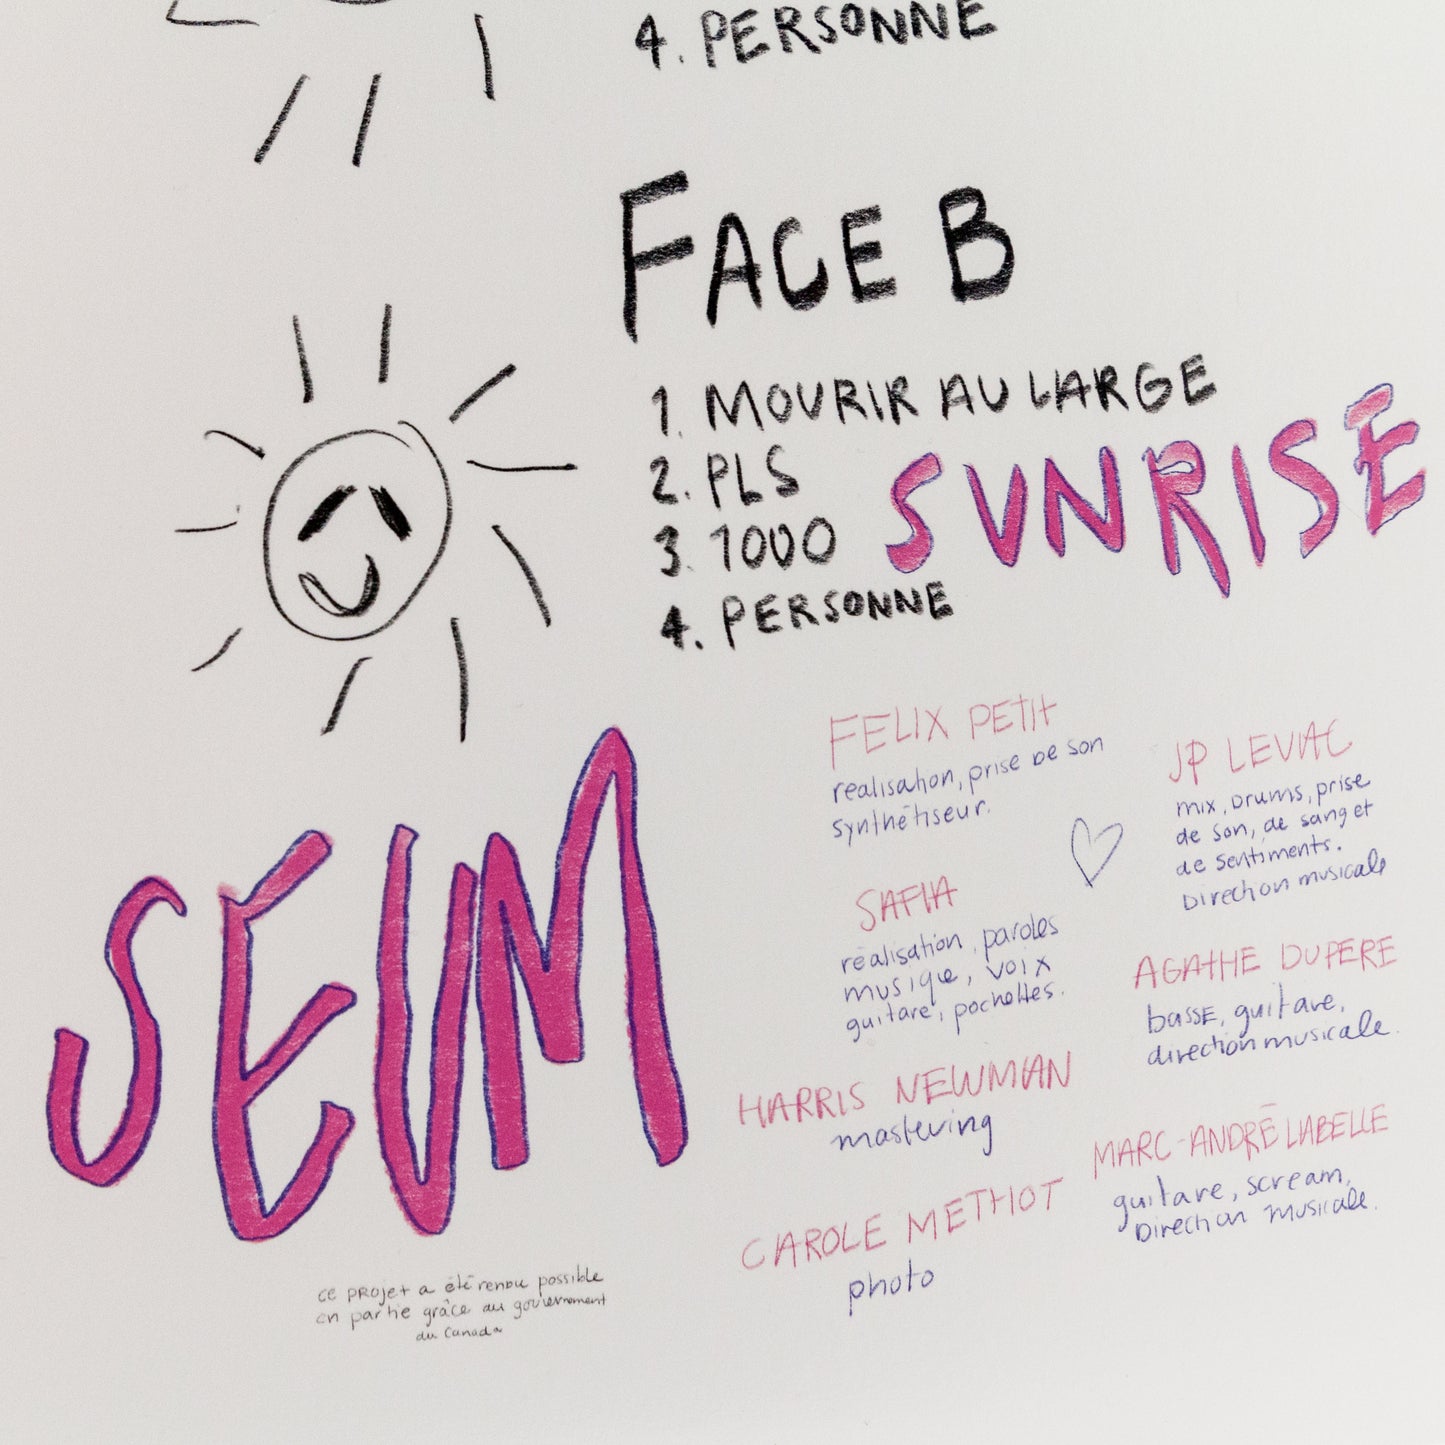 4. PERSONNE
FACE B
1. MOURIR AU LARGE
2. PLS
3. 1000
4. PERSONNE
SUNRISE
SEUM
FELIX PETIT
realisation, prise de son
synthétiseur.
JP LEVIAC
mix, Drums, prise
de son, de sang et
de sentiments.
Direction musicale
SAFIA
réalisation, paroles
musique, voix
guitare, pochettes.
AGATHE DUPERE
basse, guitare,
direction musicale.
HARRIS NEWMAN
mastering
MARC-ANDRÉ LABELLE
guitare, scream,
Direction musicale.
CAROLE METHOT
photo
ce projet a été rendu possible
en partie grâce au gouvernement
du Canada